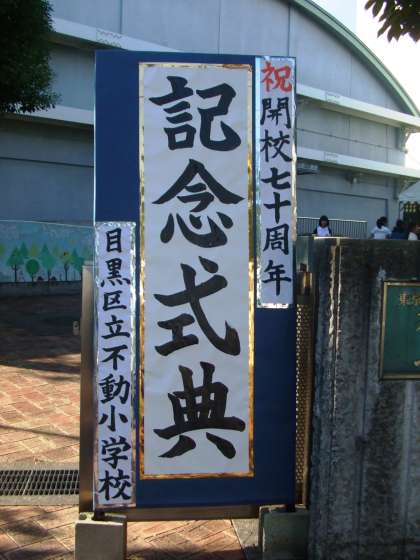 祝開校七十周年
記念式典
目黒区立不動小学校